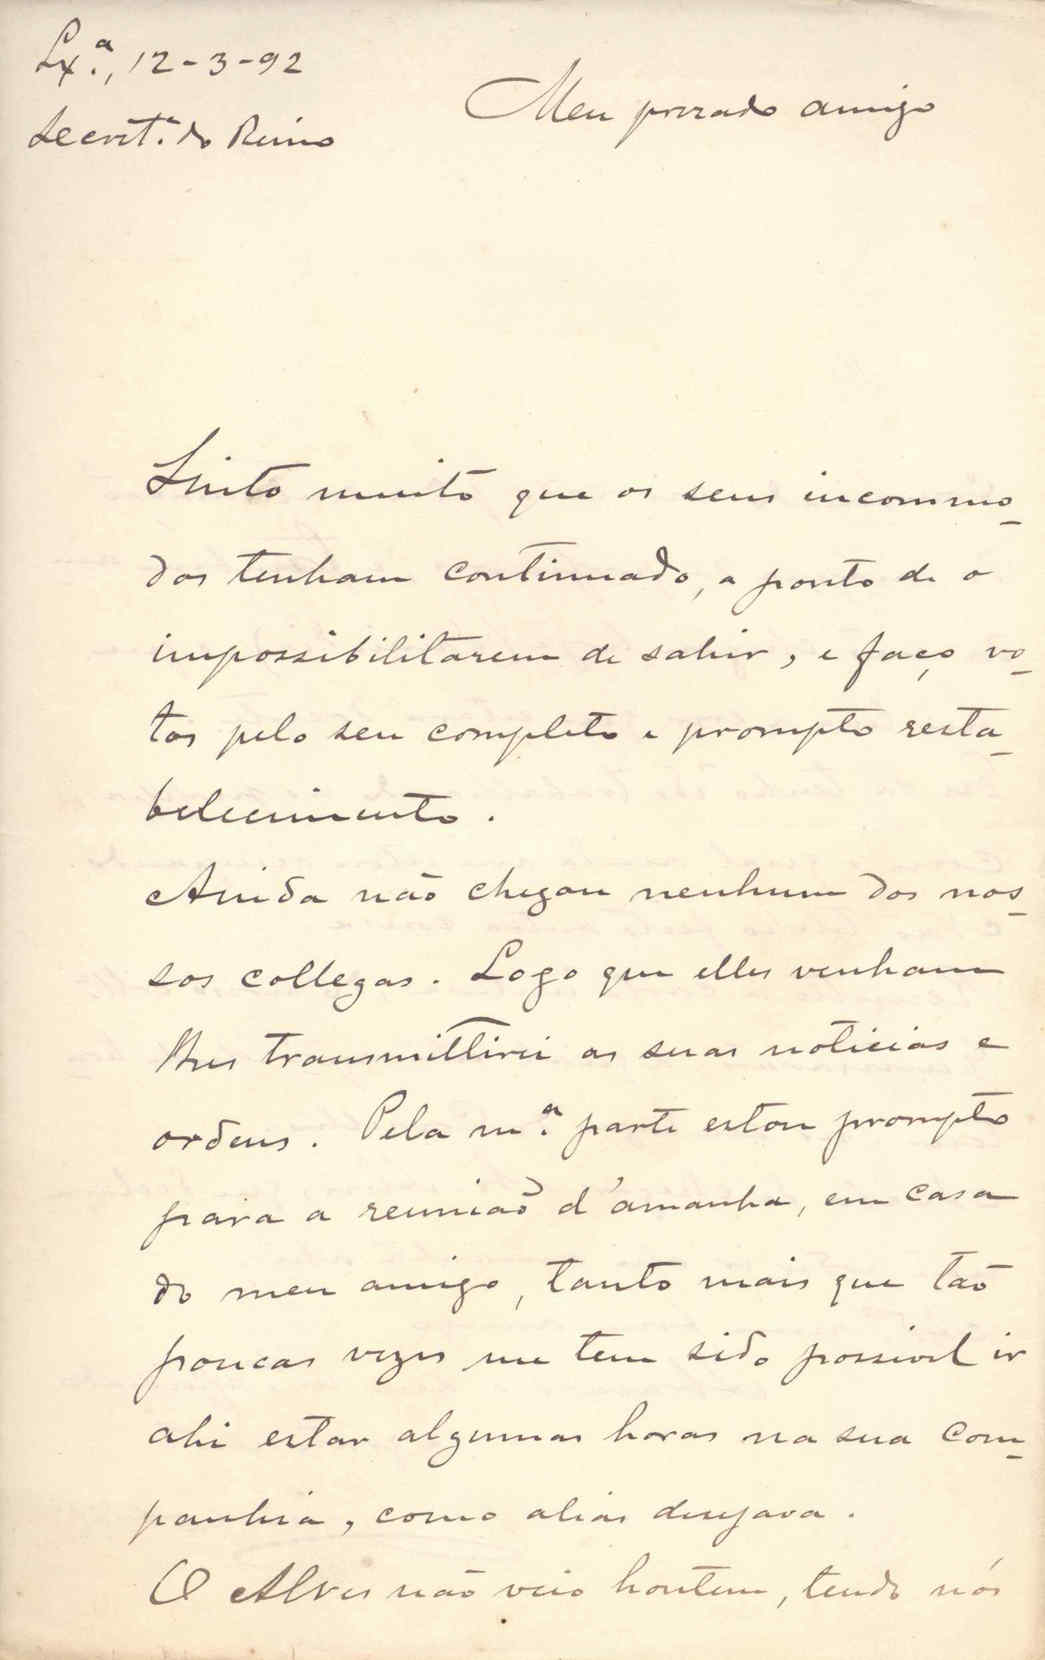 Lx.ª, 12-3-92
Secret.ª do Reino
Meu prezado amigo
Sinto muito que os seus incommo-
dos tenham continuado, a ponto de o
impossibilitarem de sahir, e faço vo-
tos pelo seu completo e prompto resta-
belecimento.
Ainda não chegou nenhum dos nos-
sos collegas. Logo que elles venham
lhes transmittirei as suas noticias e
ordens. Pela m.ª parte estou prompto
para a reunião d'amanha, em casa
do meu amigo, tanto mais que tão
poucas vezes me tem sido possivel ir
ahi estar algumas horas na sua com-
panhia, como alias desejava.
O Alves não veio hontem, tendo nós